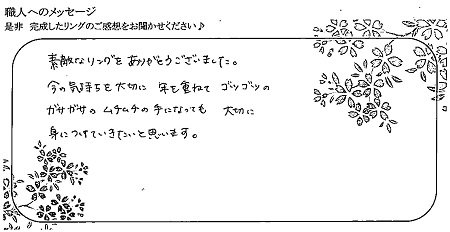 職人へのメッセージ
是非 完成したリングのご感想をお聞かせください♪
素敵なリングをありがとうございました。
今の気持ちを大切に 年を重ねて ゴツゴツの
ガサガサの ムチムチの手になっても 大切に
身につけていきたいと思います。